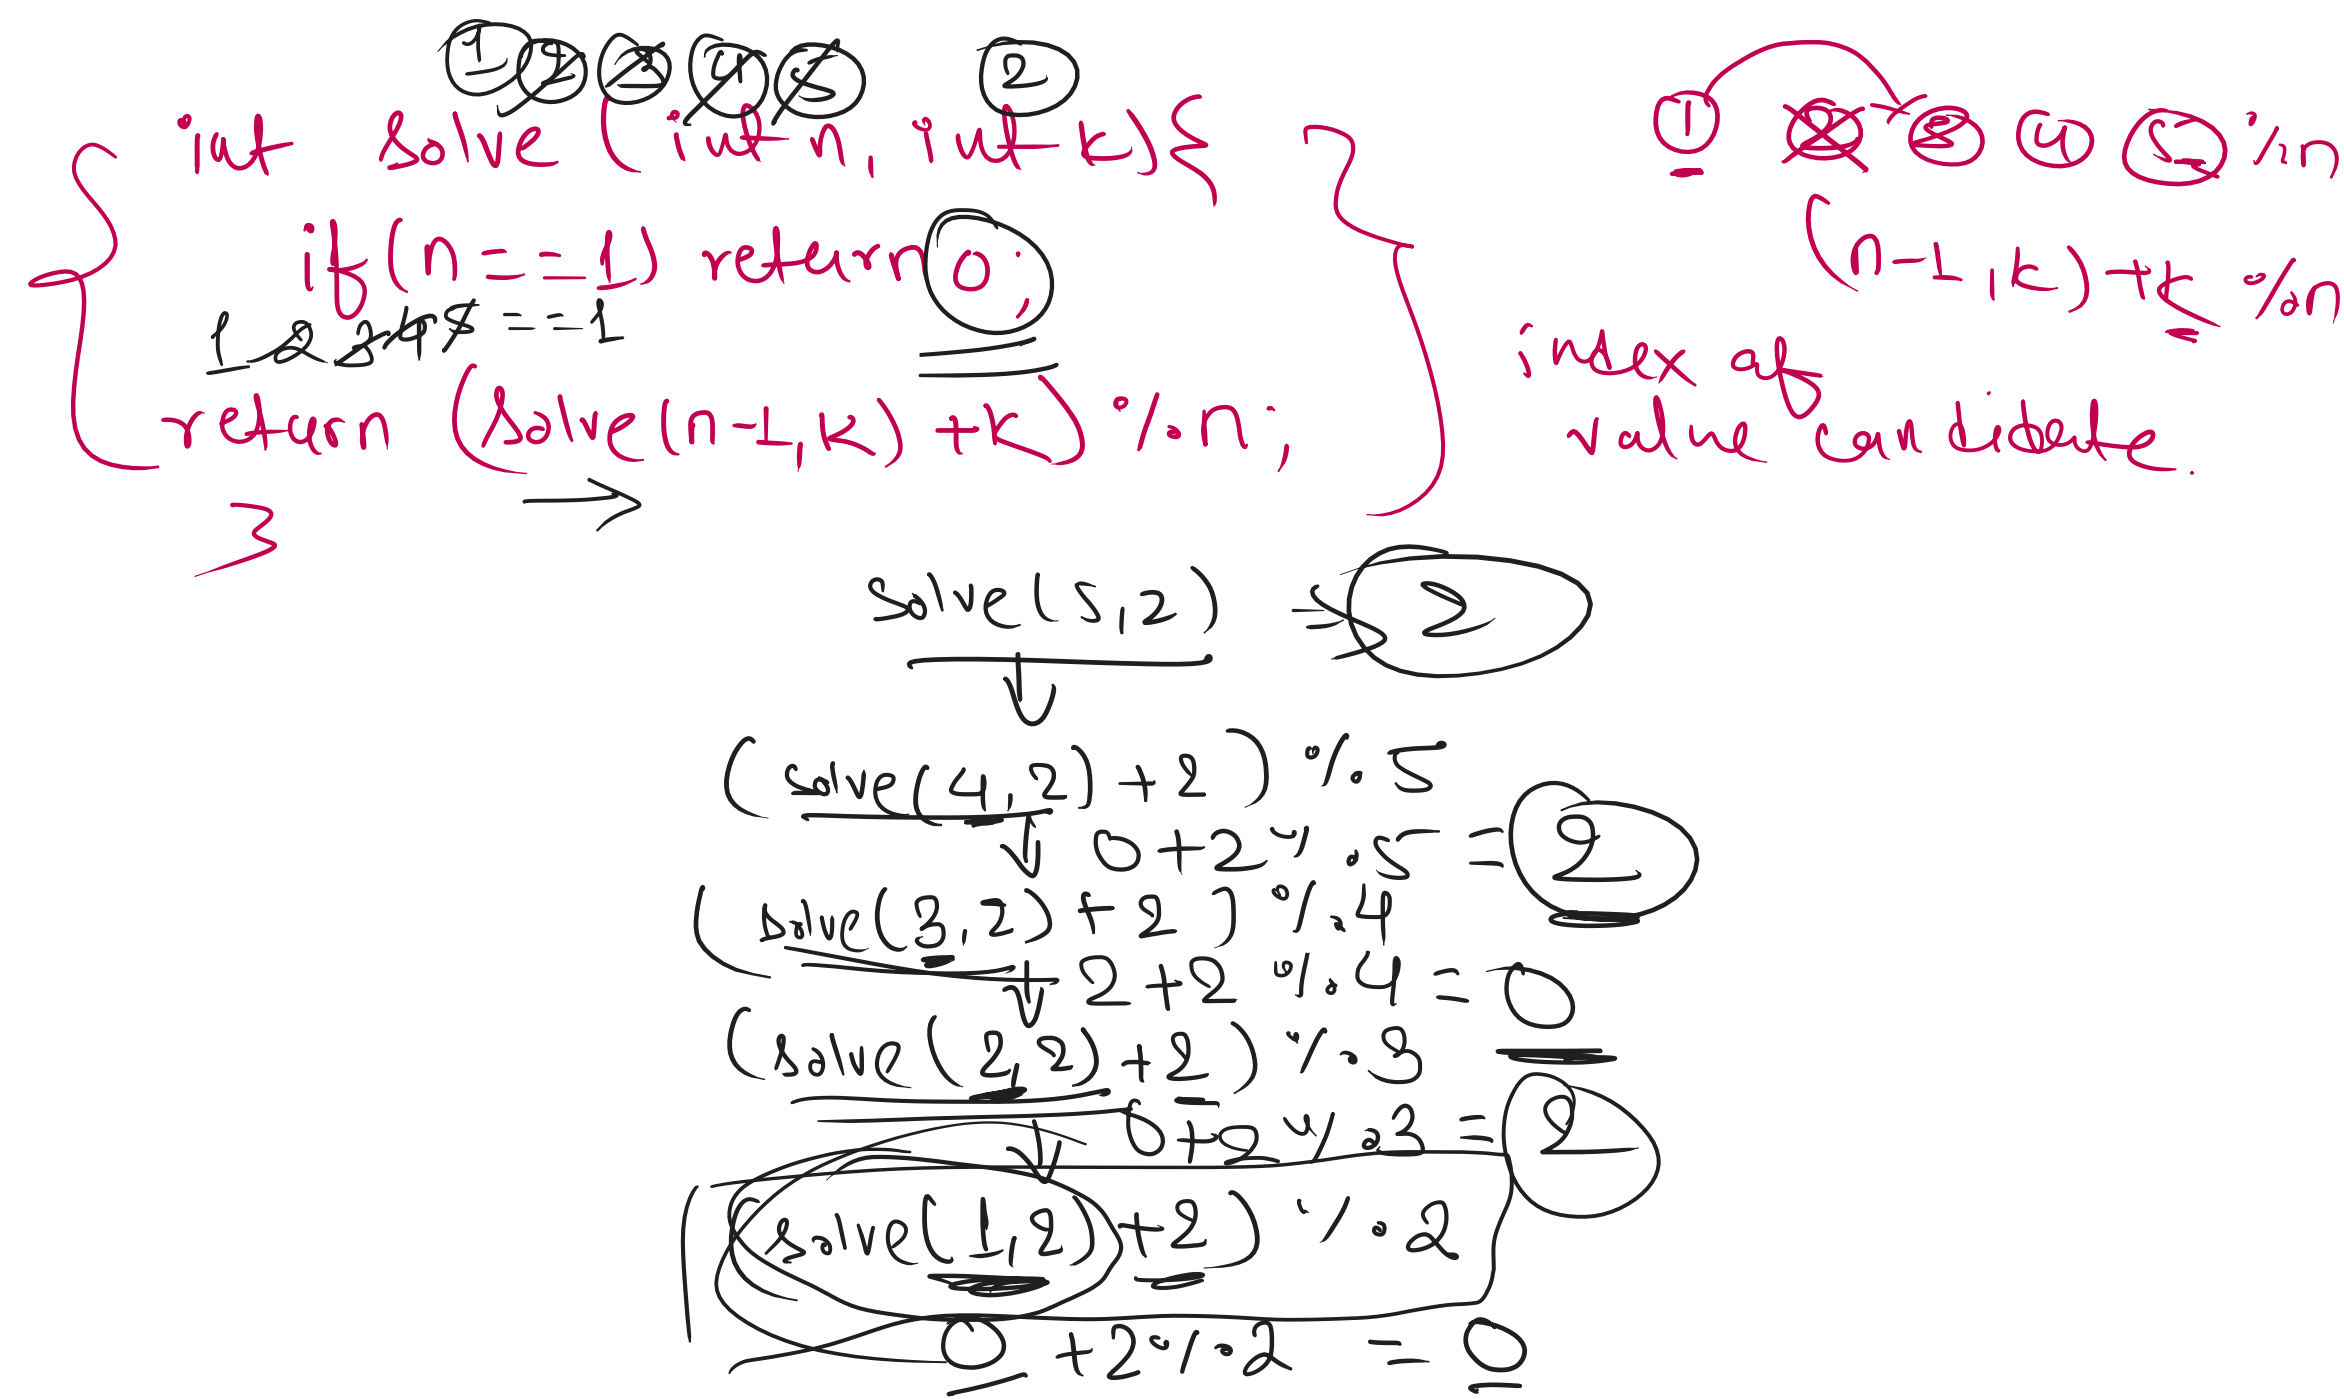 1 2 3 4 5 2
int solve (int n, int k) {
if (n == 1) return 0;
1 2 3 4 5 == 1
return (solve (n-1, k) + k) % n;
}
1 2 3 4 5 % n
(n-1, k) + k % n
index of
value candidate.
solve (5, 2) => 2
(solve (4, 2) + 2) % 5
0 + 2 % 5 = 2
(solve (3, 2) + 2) % 4
2 + 2 % 4 = 0
(solve (2, 2) + 2) % 3
0 + 2 % 3 = 2
(solve (1, 2) + 2) % 2
0 + 2 % 2 = 0